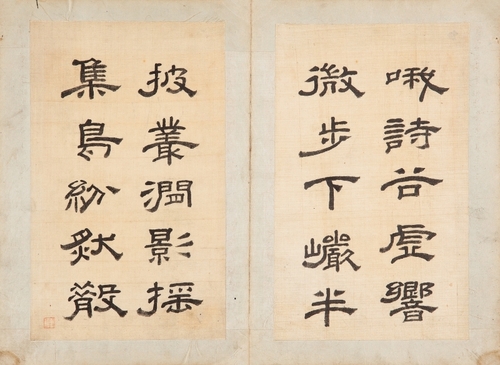 哦詩谷虛響
微步下巖半
披叢澗影搖
集鳥紛然散